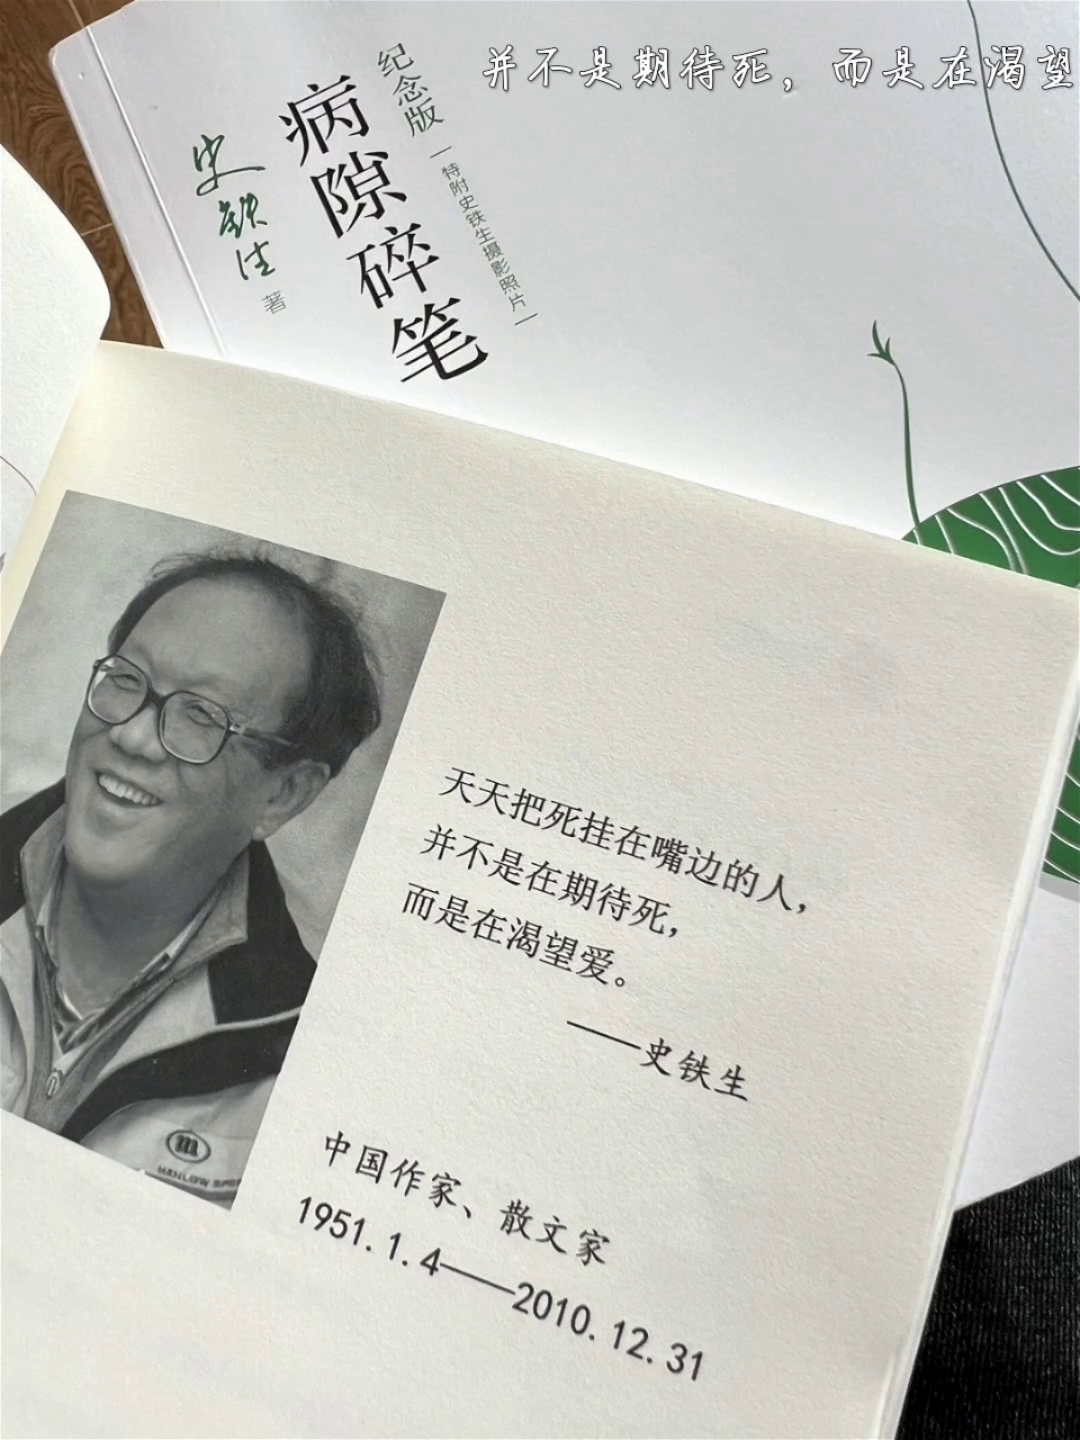 并不是期待死，而是在渴望
纪念版
特附史铁生摄影照片
病隙碎笔
史铁生 著
天天把死挂在嘴边的人，
并不是在期待死，
而是在渴望爱。
——史铁生
中国作家、散文家
1951.1.4——2010.12.31
m